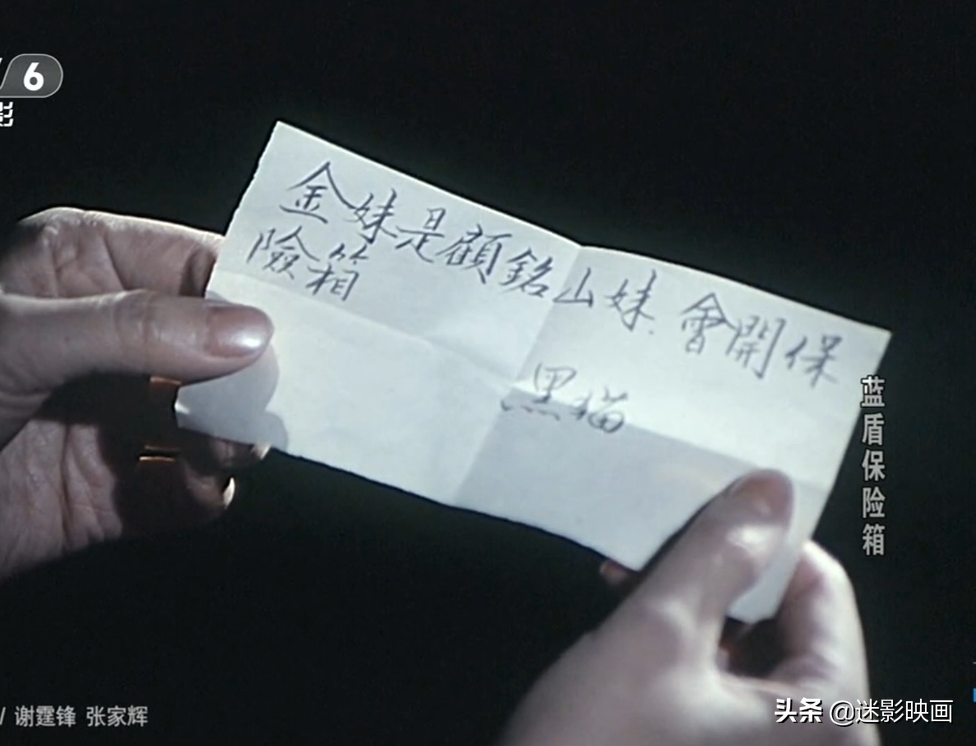 6
影
金妹是顧銘山妹.會開保
險箱
黑猫
蓝盾保险箱
/ 谢霆锋 张家辉
头条 @迷影映画